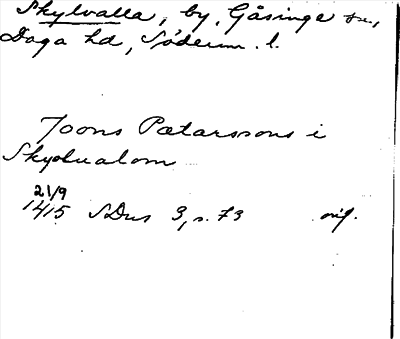 Skylvalla, by, Gåsinge sn,
Daga hd, Söderm. l.
Joons Pætarssons i
Skyolualom
21/9
1415 SDns 3, s. 73 orig.